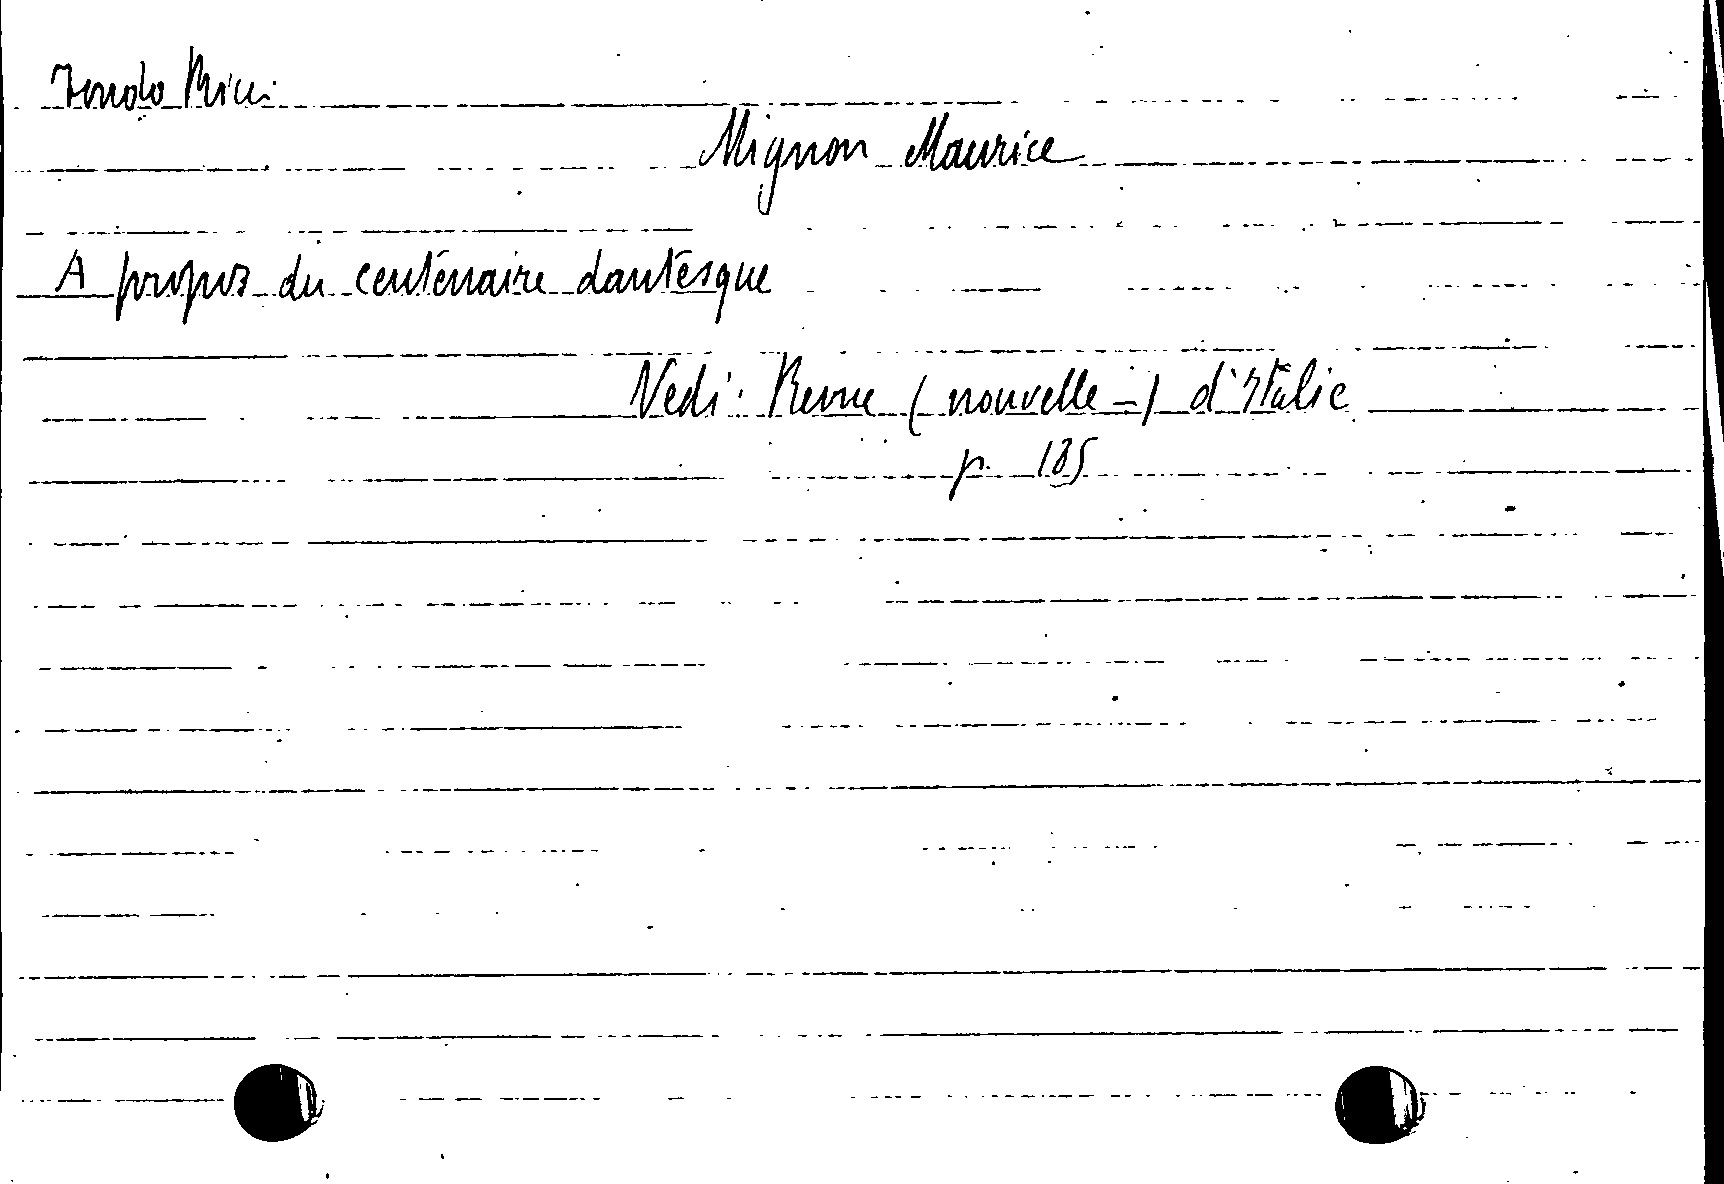 Fondo Ricci
Mignon Maurice
A propos du centenaire dantesque
Vedi: Revue (nouvelle -) d'Italie
p. 185